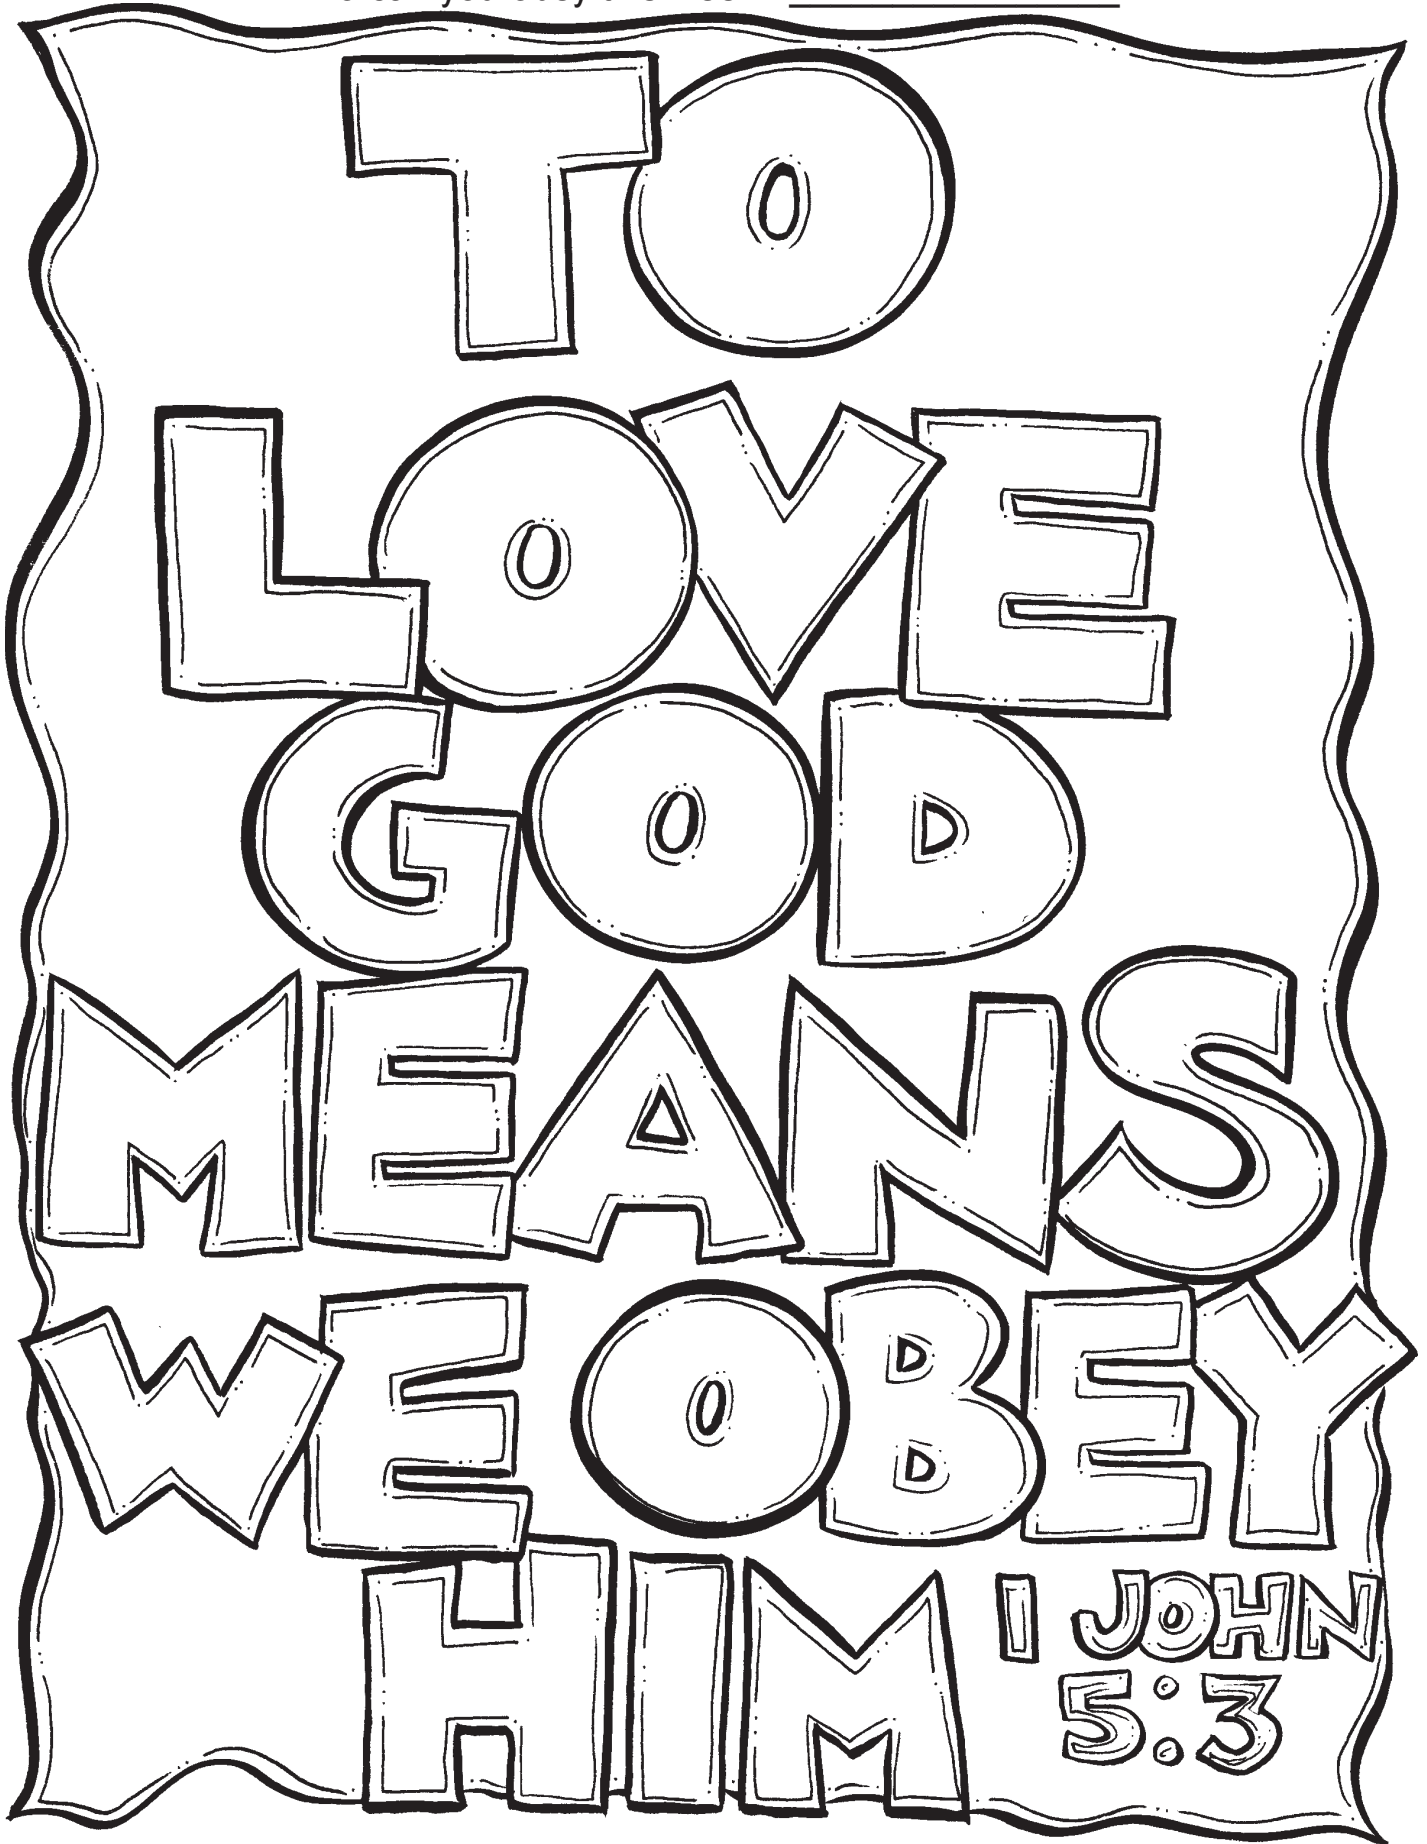 TO
LOVE
GOD
MEANS
WE OBEY
HIM
1 JOHN
5:3